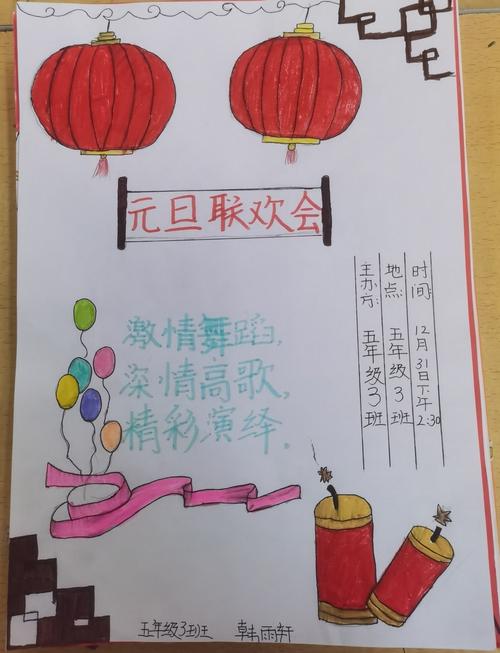 元旦联欢会
激情舞蹈，
深情高歌，
精彩演绎。
时间：12月31日下午2:30
地点：五年级3班
主办方：五年级3班
五年级3班 韩雨轩